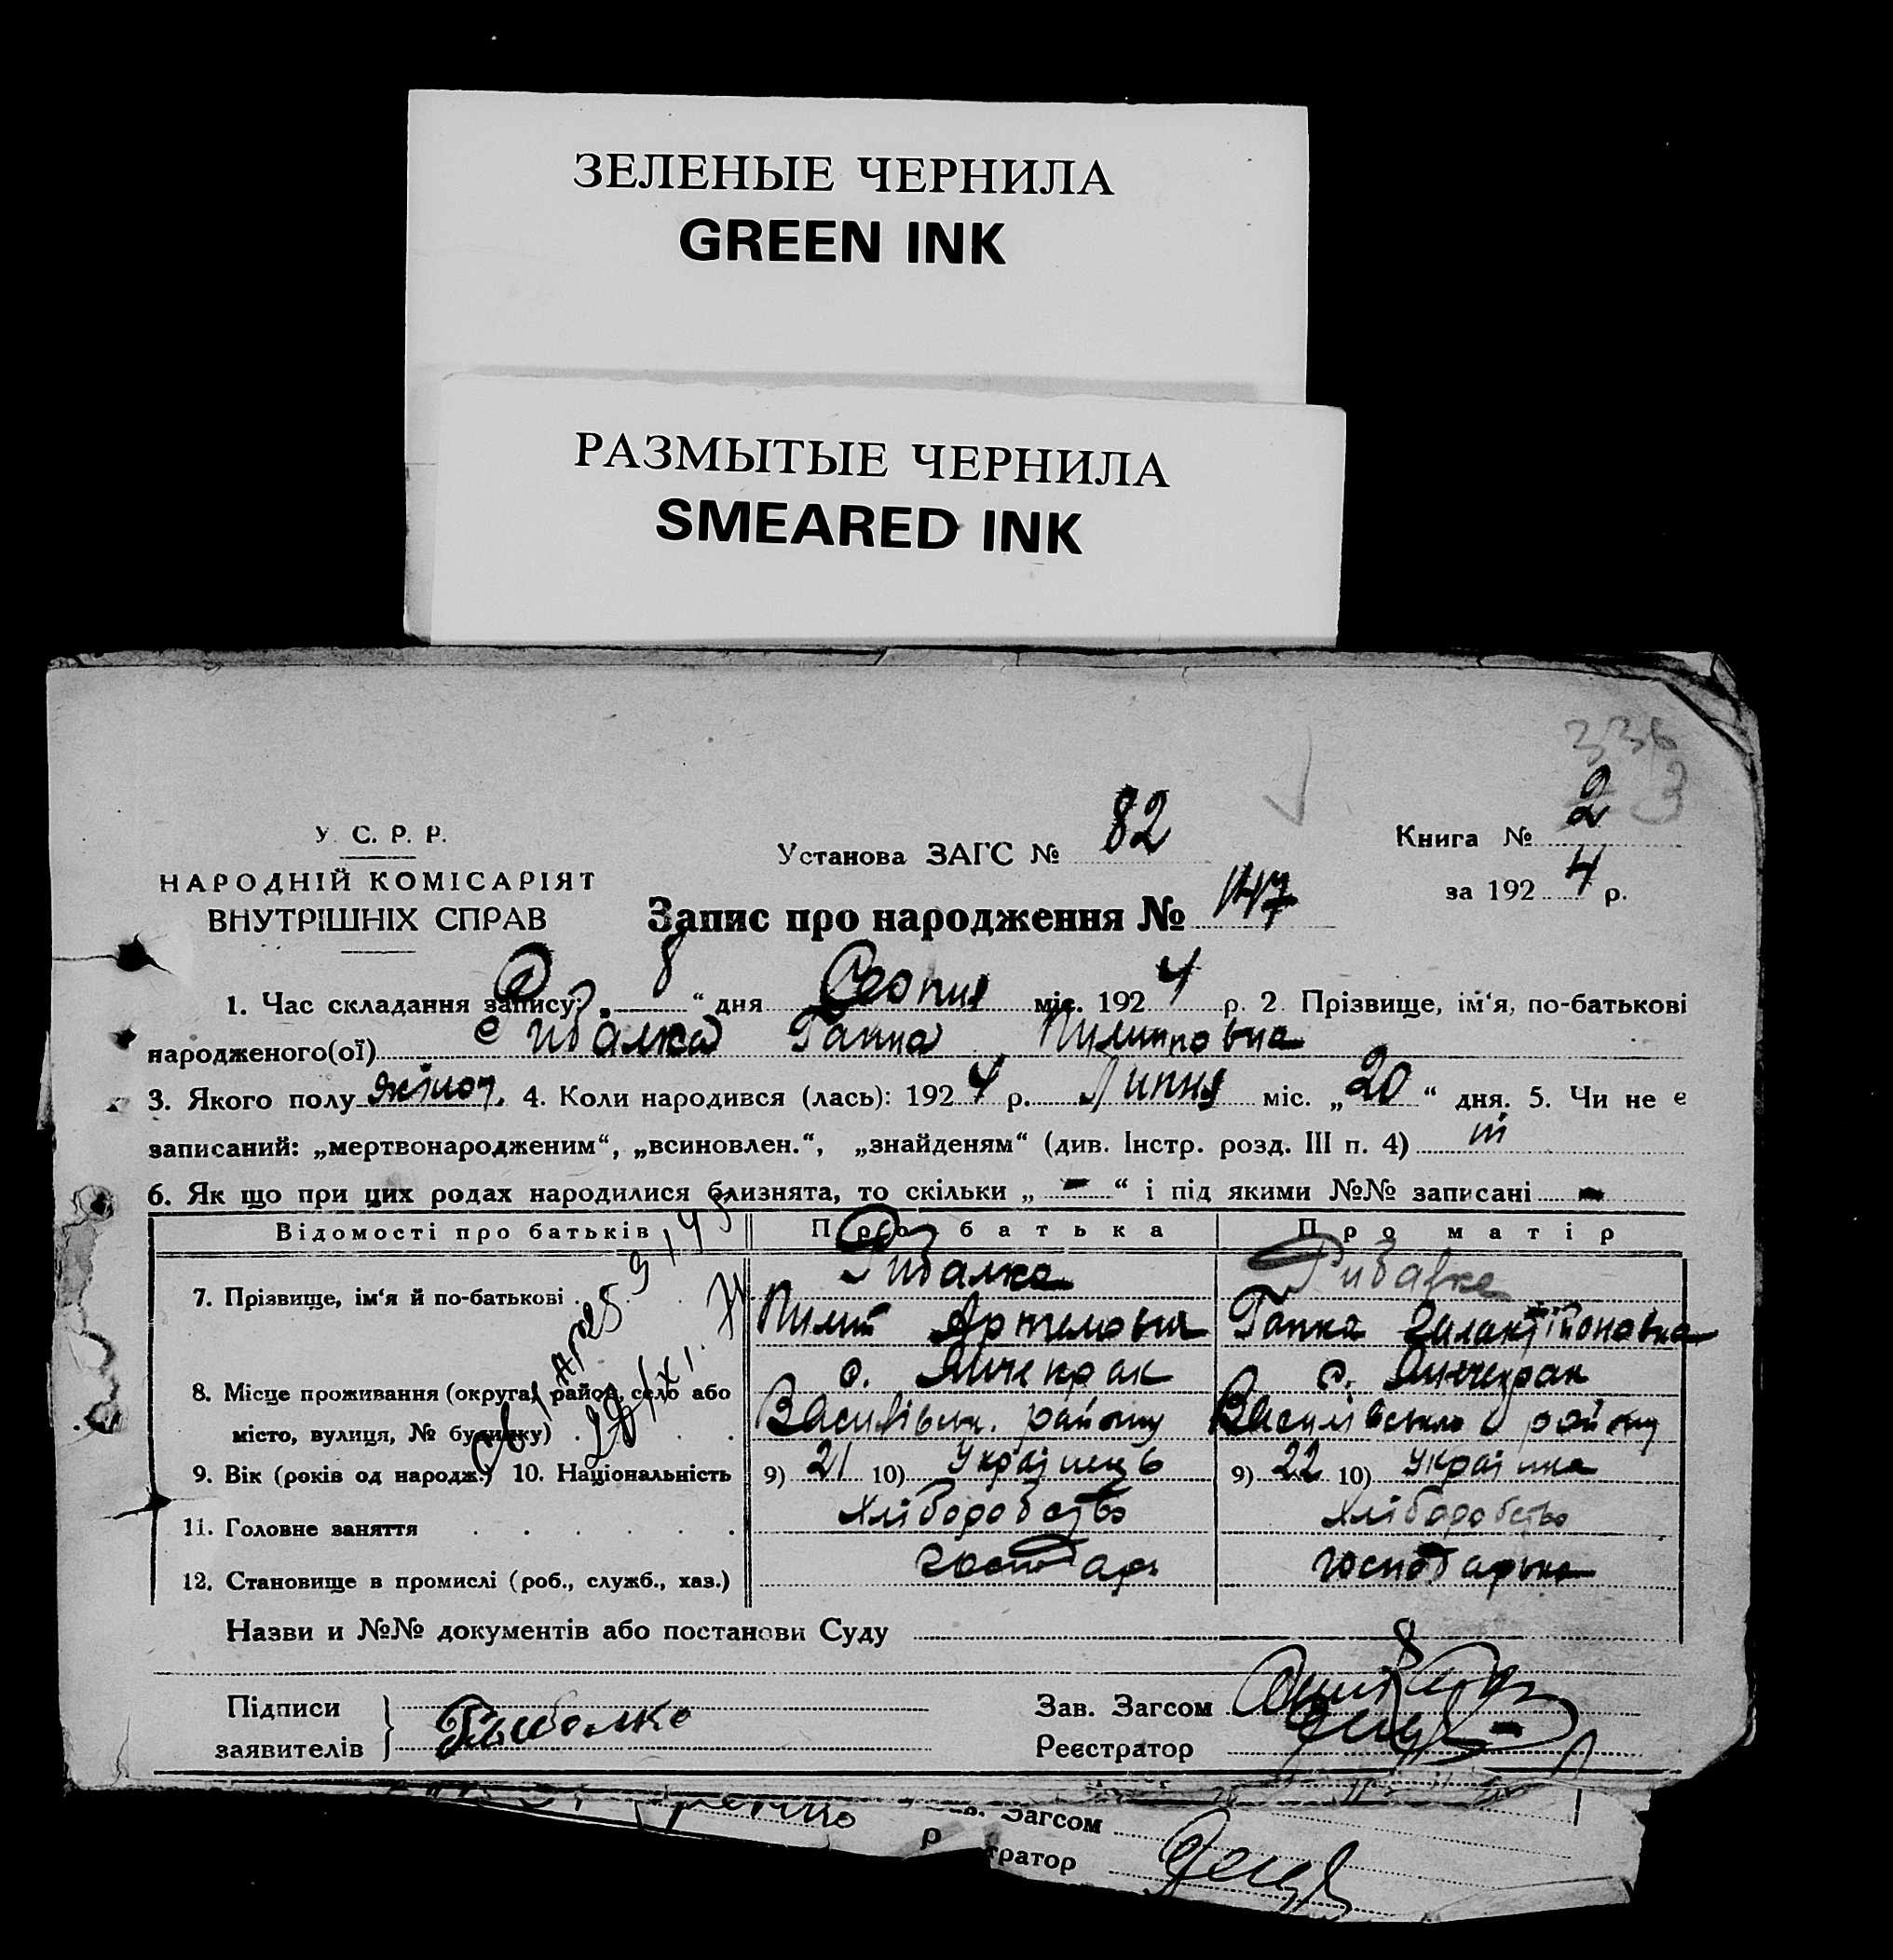 ЗЕЛЕНЫЕ ЧЕРНИЛА
GREEN INK
РАЗМЫТЫЕ ЧЕРНИЛА
SMEARED INK
336
3
У. С. Р. Р.
НАРОДНІЙ КОМІСАРІЯТ
ВНУТРІШНІХ СПРАВ
Установа ЗАГС № 82
Книга № 2
за 192 4 р.
Запис про народження № 147
1. Час складання запису: „ 8 “ дня Серпня міс. 192 4 р. 2. Прізвище, ім‘я, по-батькові
народженого(ої) Рибалка Ганна Пилиповна
3. Якого полу жіноч. 4. Коли народився (лась): 192 4 р. Липня міс. „ 20 “ дня. 5. Чи не є
записаний: „мертвонародженим“, „всиновлен.“, „знайденям“ (див. Інстр. розд. III п. 4) ні
6. Як що при цих родах народилися близнята, то скільки „ - “ і під якими №№ записані -
Відомості про батьків Про батька Про матір
7. Прізвище, ім‘я й по-батькові Рибалка Рибалка
Пилип Артемович Ганна Галактіоновна
8. Місце проживання (округа, район, село або с. Янчекрак с. Янчекрак
місто, вулиця, № будинку) Василівськ. району Василівського району
9. Вік (років од народж.) 10. Національність 9) 21 10) Українець 9) 22 10) Українка
11. Головне заняття Хліборобство Хліборобство
12. Становище в промислі (роб., служб., хаз.) господар господарька
Назви и №№ документів або постанови Суду
Підписи
заявителів Рыбалко
Зав. Загсом
Реєстратор
Загсом
тратор